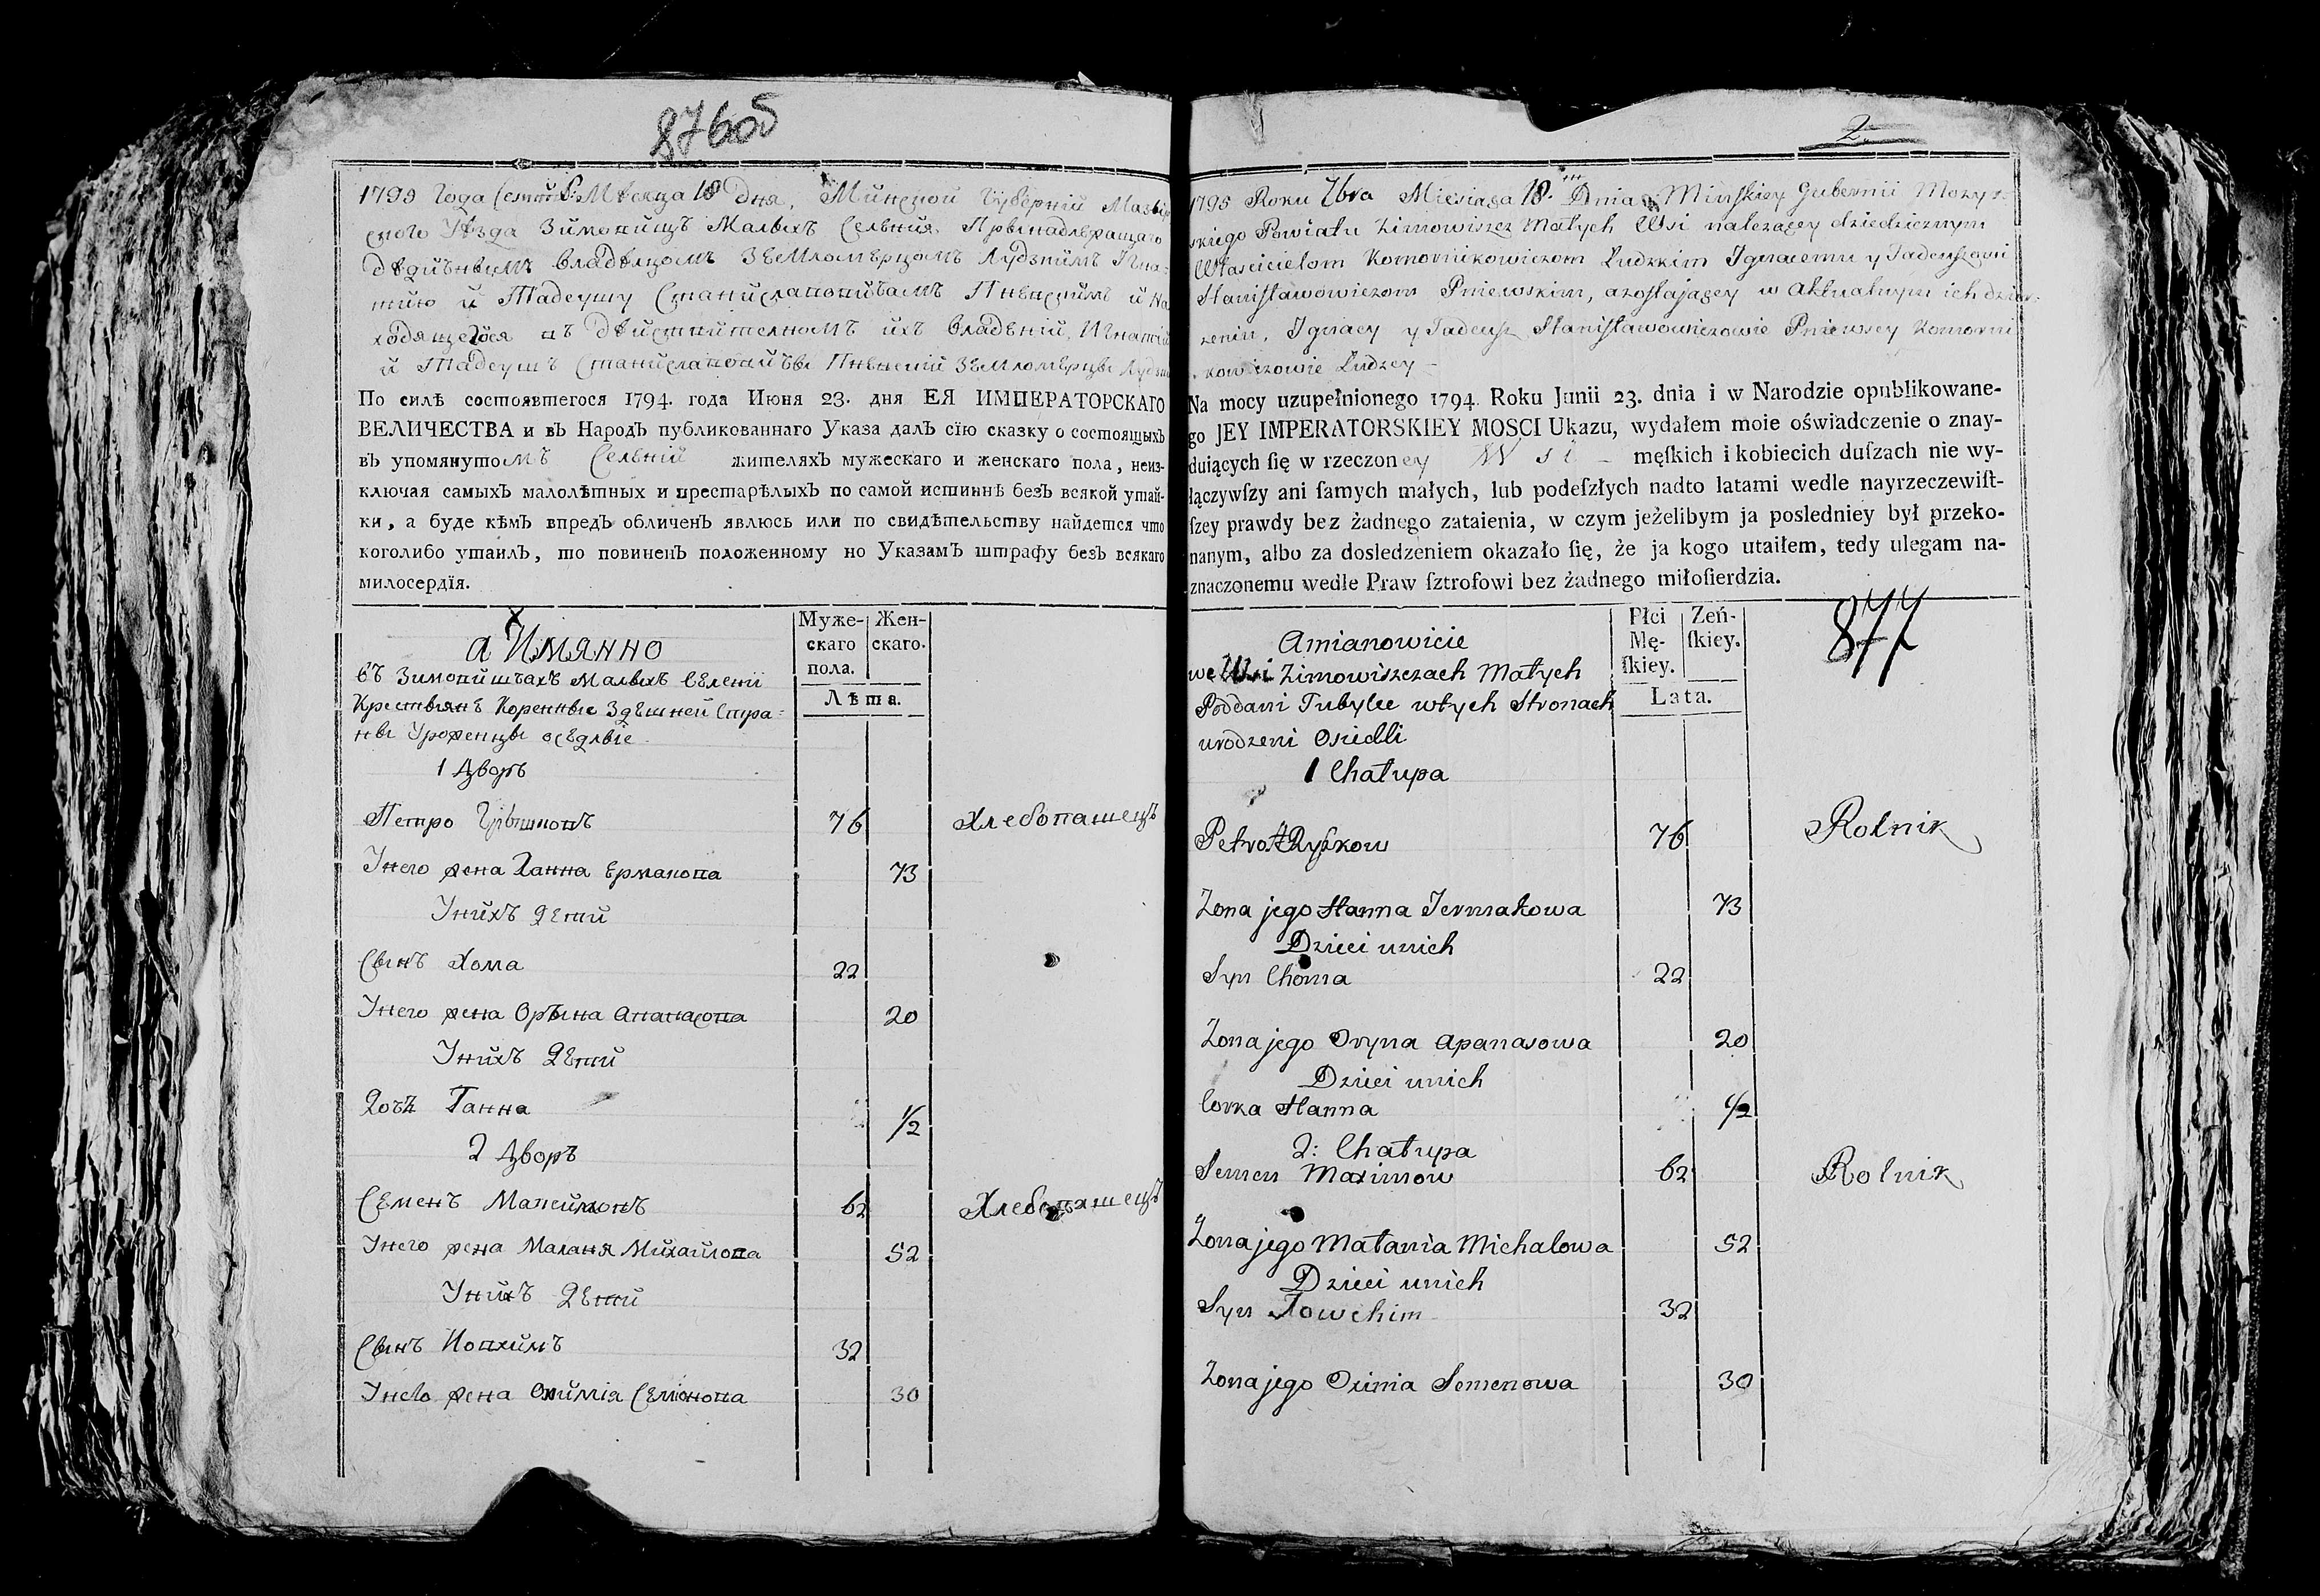 876об
1795 Года Септѣб: Мѣсяца 18 Дня, Минской Губерніи Мазыр
скаго Уѣзда Зимовищъ Малыхъ Селенія Принадлежащаго
дѣдичнымъ владѣлцомъ Землемѣрцомъ Лудзкимъ Игна-
тію и Тадеушу Станиславовичамъ Пневскимъ и на
ходящегося въ дѣйствителномъ ихъ владѣніи, Игнатій
и Тадеушъ Станиславовичъвы Пневскіи Землемѣрцы
По силѣ состоявшегося 1794. года Июня 23. дня ЕЯ ИМПЕРАТОРСКАГО
ВЕЛИЧЕСТВА и вЪ НародЪ публикованнаго Указа далЪ сїю сказку о состоящыхЪ
вЪ упомянутомъ Селеніи жителяхЪ мужескаго и женскаго пола, неиз-
ключая самыхЪ малолѣтныхъ и престарѣлыхЪ по самой истиннѣ безЪ всякой утай-
ки, а буде кѣмЪ впредЪ обличенЪ явлюсь или по свидѣтельству найдется что
коголибо утаилЪ, то повиненЪ положенному по УказамЪ штрафу безЪ всякаго
милосердїя.
а Имянно
Муже-
скаго
пола.
Жен-
скаго.
Лѣта.
въ Зимовищахъ Малыхъ Селеніи
Крестьянъ Коренные Здешней Стра-
ны Уроженцы оседлые
1 Дворъ
Петро Грышковъ 76 Хлебопашецъ
Унего жена Ханна Ермакова 73
Унихъ дети
Сынъ Хома 22
Унего жена Орына Апанасова 20
Унихъ дети
Дочь Ганна 1/2
2 Дворъ
Семенъ Максимовъ 62 Хлебопашецъ
Унего жена Маланя Михайлова 52
Унихъ дети
Сынъ Иовхимъ 32
Унего жена Охимія Семіонова 30
2
1795 Roku 7bra Miesiąca 18. Dnia Minskiey Gubernii Mozyr-
skiego Powiatu Zimowiszcz Małych Wsi należącey dziedzicznym
Właścicielom Komornikowiczom Łudzkim Ignacemu y Tadeuszowi
Stanisławowiczom Pniewskim, a zostaiącey w Aktualnym ich dzier-
żeniu, Ignacy y Tadeusz Stanisławowiczowie Pniewscy Komorni
kowiczowie Łudzcy
Na mocy uzupełnionego 1794. Roku Junii 23. dnia i w Narodzie opublikowane-
go JEY IMPERATORSKIEY MOSCI Ukazu, wydałem moie oświadczenie o znay-
duiących ſię w rzeczoney Wsi męſkich i kobiecich duſzach nie wy-
łączywſzy ani ſamych małych, lub podeſzłych nadto latami wedle nayrzeczewiſt-
ſzey prawdy bez żadnego zataienia, w czym jeżelibym ja posledniey był przeko-
nanym, albo za dosledzeniem okazało ſię, że ja kogo utaiłem, tedy ulegam na-
znaczonemu wedle Praw ſztrofowi bez żadnego miłoſierdzia.
Amianowicie
Płci
Mę-
ſkiey.
Zeń-
ſkiey.
Lata.
877
we Wsi Zimowiszczach Małych
Poddani Tubylce w tych Stronach
urodzeni Osiedli
1 Chałupa
Petro Hryszkow 76 Rolnik
Zona jego Hanna Jermakowa 73
Dzieci unich
Syn Choma 22
Zona jego Oryna Apanasowa 20
Dzieci unich
Corka Hanna 1/2
2: Chałupa
Semen Maximow 62 Rolnik
Zona jego Małania Michalowa 52
Dzieci unich
Syn Jowchim 32
Zona jego Oximia Semenowa 30